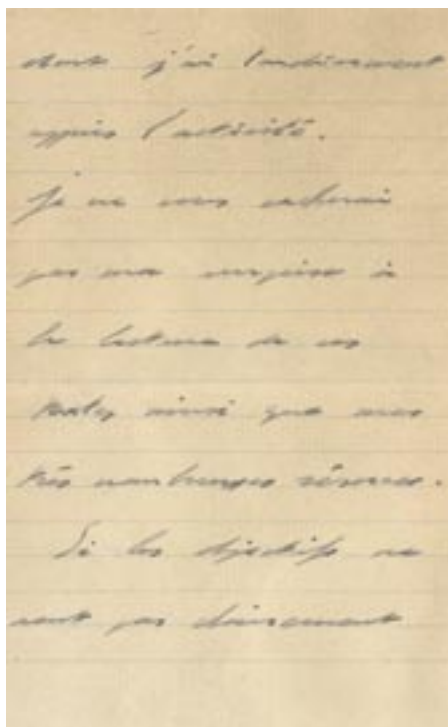 dont j'ai
appris l'activité.
Je ne vous cacherai
pas ma surprise à
la lecture de ces
textes ainsi que mes
très nombreuses réserves.
Si les objectifs ne
sont pas clairement